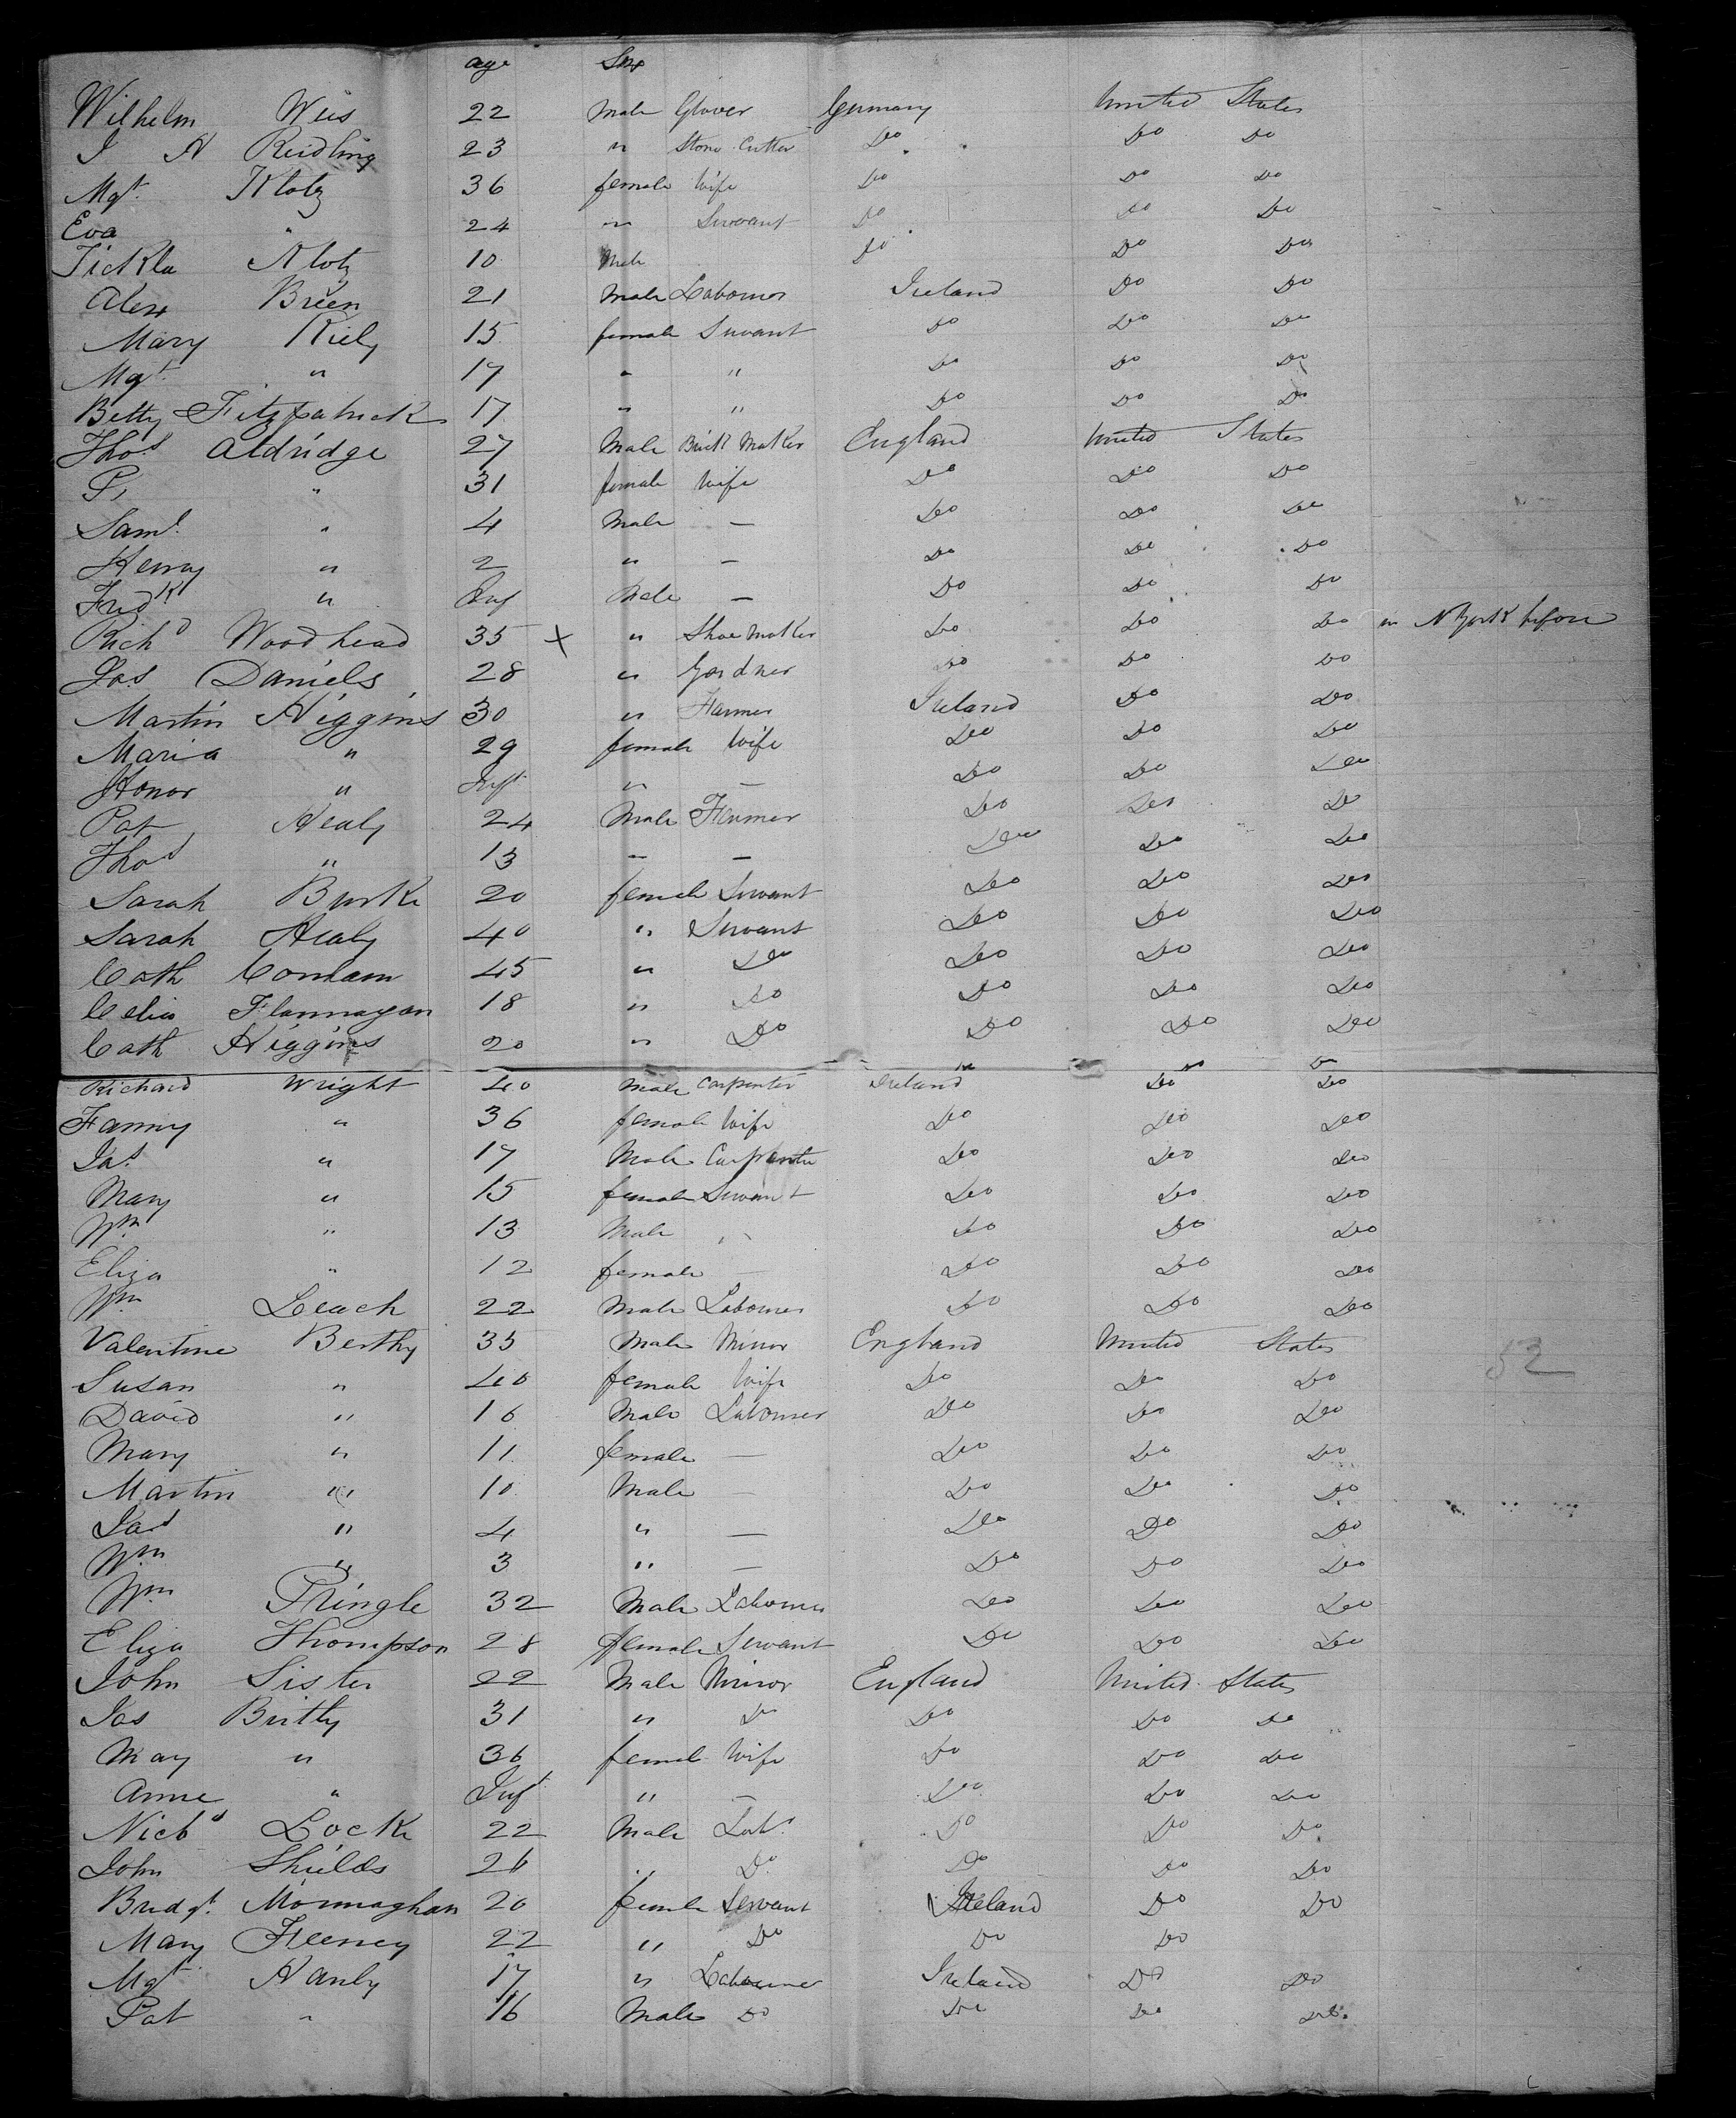 age Sex
Wilhelm Weis 22 Male Glover Germany United States
J A Reidling 23 " Stone Cutter Do Do Do
Mgt. Klotz 36 female Wife Do Do Do
Eva " 24 " Servant Do Do Do
Tickla Klotz 10 Male Do Do Do
Alex Breen 21 Male Labourer Ireland Do Do
Mary Kiely 15 female Servant Do Do Do
Mgt. " 17 " " Do Do Do
Betty Fitzpatrick 17 " " Do Do Do
Thos Aldridge 27 Male Brick Maker England United States
" 31 female Wife Do Do Do
Saml. " 4 Male — Do Do Do
Henry " 2 " — Do Do Do
Fredk " Inf Male — Do Do Do
Richd Woodhead 35 X " Shoe Maker Do Do Do in N York before
Jas Daniels 28 " Gardner Do Do Do
Martin Higgins 30 " Farmer Ireland Do Do
Maria " 29 female Wife Do Do Do
Honor " Inft " — Do Do Do
Pat Healy 24 Male Farmer Do Do Do
Thos " 13 — — Do Do Do
Sarah Burke 20 female Servant Do Do Do
Sarah Healy 40 " Servant Do Do Do
Cath 45 " Do Do Do Do
Celia Flannagan 18 " Do Do Do Do
Cath Higgins 20 " Do Do Do Do
Richard Wright 40 Male Carpenter Ireland Do Do
Fanny " 36 female Wife Do Do Do
Jas. " 17 Male Carpenter Do Do Do
Mary " 15 female Servant Do Do Do
Wm. " 13 Male " Do Do Do
Eliza " 12 female — Do Do Do
Wm Leach 22 Male Labourer Do Do Do
Valentine Berthy 35 Male Minor England United States
52
Susan " 40 female Wife Do Do Do
David " 16 Male Labourer Do Do Do
Mary " 11 female — Do Do Do
Martin " 10 Male — Do Do Do
Jas " 4 " — Do Do Do
Wm " 3 " — Do Do Do
Wm. Pringle 32 Male Labourer Do Do Do
Eliza Thompson 28 female Servant Do Do Do
John Sister 22 Male Minor England United States
Jas 31 " Do Do Do Do
May " 36 femal Wife Do Do Do
Anne " Inft " — Do Do Do
Nichs Locke 22 Male Labr. Do Do Do
John Shields 26 " Do Do Do Do
Bridgt. Monnaghan 20 female Servant Ireland Do Do
Mary Feeney 22 " Do Do Do
Mgt Hanly 17 " Labourer Ireland Do Do
Pat " 16 Male Do Do Do Do